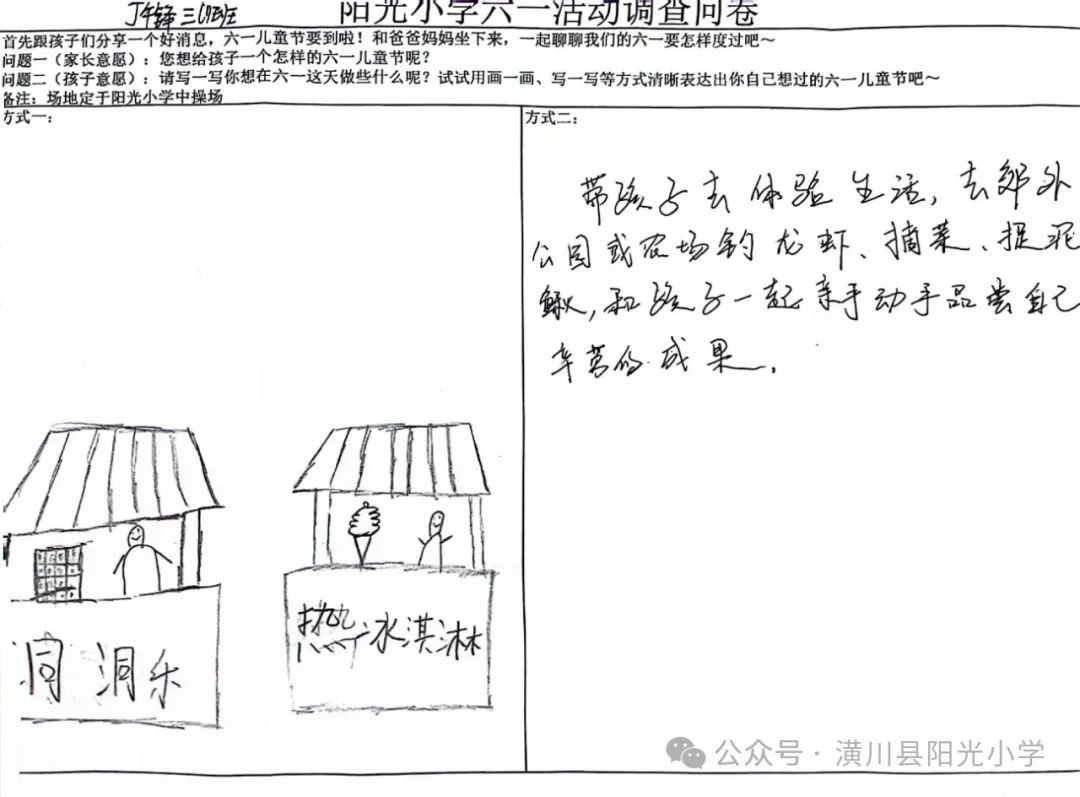 三(1)班
阳光小学六一活动调查问卷
首先跟孩子们分享一个好消息，六一儿童节要到啦！和爸爸妈妈坐下来，一起聊聊我们的六一要怎样度过吧～
问题一（家长意愿）：您想给孩子一个怎样的六一儿童节呢？
问题二（孩子意愿）：请写一写你想在六一这天做些什么呢？试试用画一画、写一写等方式清晰表达出你自己想过的六一儿童节吧～
备注：场地定于阳光小学中操场
方式一：
方式二：
带孩子去体验生活，去郊外
公园或农场钓龙虾、摘菜、捉泥
鳅，和孩子一起亲手动手品尝自己
辛劳的成果。
热冰淇淋
洞洞乐
公众号·潢川县阳光小学